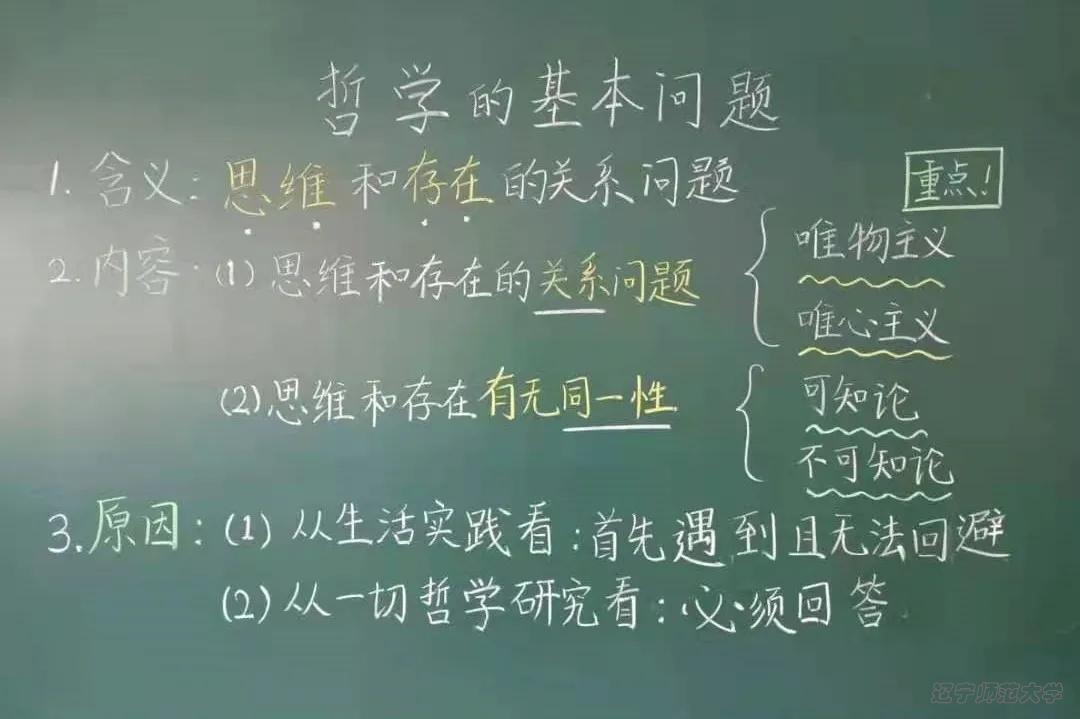 哲学的基本问题
1. 含义：思维和存在的关系问题
重点！
2. 内容：(1) 思维和存在的关系问题
唯物主义
唯心主义
(2) 思维和存在有无同一性
可知论
不可知论
3. 原因：(1) 从生活实践看：首先遇到且无法回避
(2) 从一切哲学研究看：必须回答
辽宁师范大学